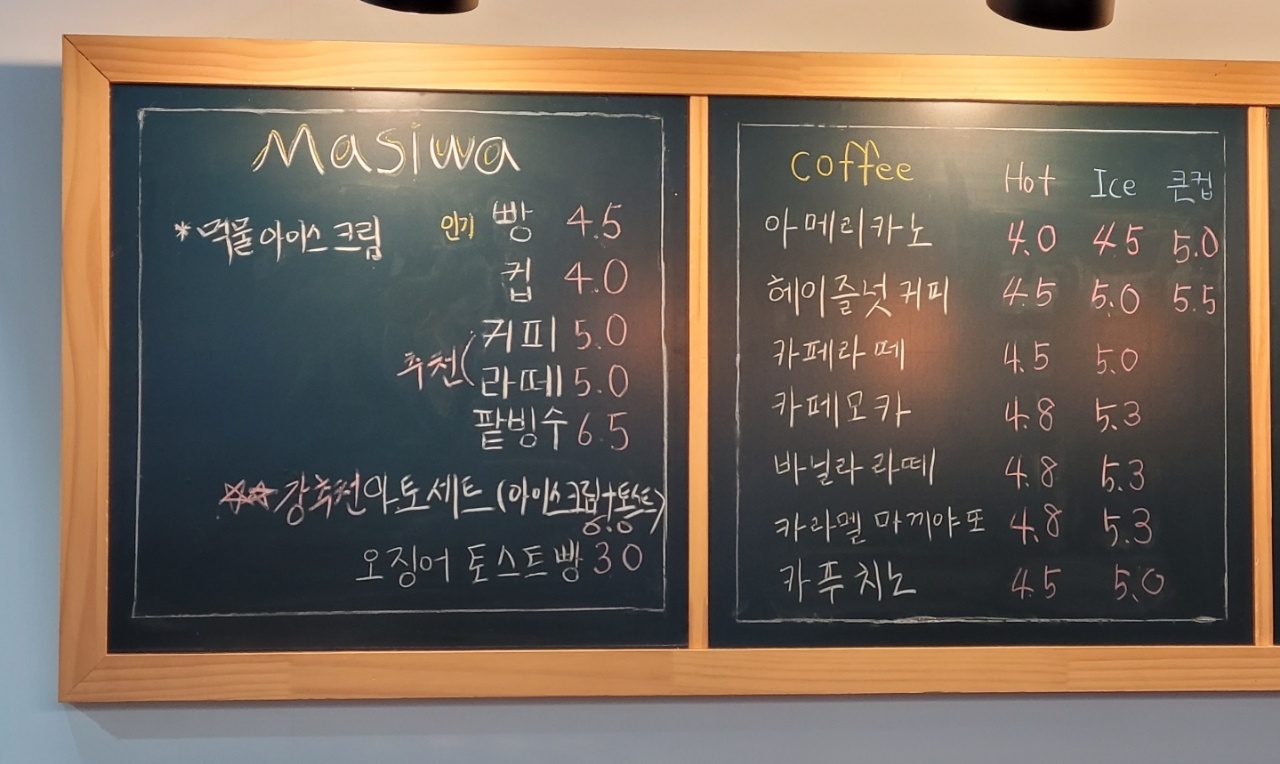 Masiwa
*먹물아이스크림 인기 빵 4.5
컵 4.0
추천( 커피 5.0
라떼 5.0
팥빙수 6.5
☆☆강추천아토세트(아이스크림+토스트)
8.0
오징어 토스트빵 3.0
coffee Hot Ice 큰컵
아메리카노 4.0 4.5 5.0
헤이즐넛커피 4.5 5.0 5.5
카페라떼 4.5 5.0
카페모카 4.8 5.3
바닐라라떼 4.8 5.3
카라멜 마끼야또 4.8 5.3
카푸치노 4.5 5.0